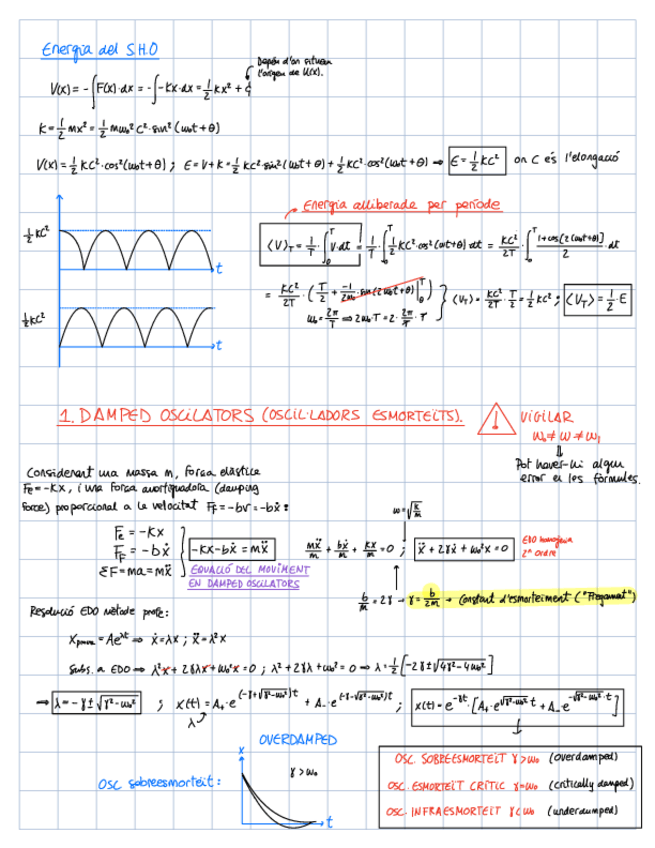 Energia del S.H.O
Depèn d'on situem
l'origen de U(x).
V(x) = -∫F(x)·dx = -∫-kx·dx = 1/2 kx² + C
K = 1/2 mẋ² = 1/2 mω₀² C²·sin²(ω₀t+θ)
V(x) = 1/2 kC²·cos²(ω₀t+θ) ; E = V+K = 1/2 kC²·sin²(ω₀t+θ) + 1/2 kC²·cos²(ω₀t+θ) ⇒ E = 1/2 kC² on C és l'elongació
Energia alliberada per període
1/2 kC²
t
⟨V⟩_T = 1/T·∫₀ᵀ V·dt = 1/T·∫₀ᵀ 1/2 kC²·cos²(ωt+θ) dt = kC²/2T·∫₀ᵀ (1+cos[2(ωt+θ)])/2·dt
= kC²/2T·(T/2 + -1/2ω₀·sin(2ω₀t+θ)|₀ᵀ) } ⟨V_T⟩ = kC²/2T·T/2 = 1/2 kC² ; ⟨V_T⟩ = 1/2·E
ω₀ = 2π/T ⇒ 2ω₀·T = 2·2π/T·T
1/2 kC²
t
1. DAMPED OSCILATORS (OSCIL·LADORS ESMORTEÏTS).
! VIGILAR
ω₀ ≠ ω ≠ ω₁
⇓
Pot haver-hi algun
error en les fórmules.
Considerant una massa m, força elàstica
Fe = -kx, i una força amortiguadora (damping
force) proporcional a la velocitat F_F = -bv = -bẋ :
ω = √(k/m)
Fe = -kx
F_F = -bẋ
ΣF = ma = mẍ
-kx-bẋ = mẍ
mẍ/m + bẋ/m + kx/m = 0 ; ẍ + 2γẋ + ω₀²x = 0
EDO homogènia
2ⁿ ordre
EQUACIÓ DEL MOVIMENT
EN DAMPED OSCILATORS
b/m = 2γ → γ = b/2m → Constant d'esmorteïment ("Fregament")
Resolució EDO mètode profe:
x_prova = Ae^λt ⇒ ẋ = λx ; ẍ = λ²x
Subs. a EDO ⇒ λ²x + 2γλx + ω₀²x = 0 ; λ² + 2γλ + ω₀² = 0 ⇒ λ = 1/2[-2γ ± √(4γ²-4ω₀²)]
⇒ λ = -γ ± √(γ²-ω₀²) ; x(t) = A₊·e^(-γ+√(γ²-ω₀²))t + A₋·e^(-γ-√(γ²-ω₀²))t ; x(t) = e^-γt·[A₊·e^√(γ²-ω₀²)·t + A₋e^-√(γ²-ω₀²)·t]
λ
OVERDAMPED
Osc sobreesmorteït :
x
γ > ω₀
t
OSC. SOBREESMORTEÏT γ > ω₀ (overdamped)
OSC. ESMORTEÏT CRÍTIC γ = ω₀ (critically damped)
OSC. INFRAESMORTEÏT γ < ω₀ (underdamped)